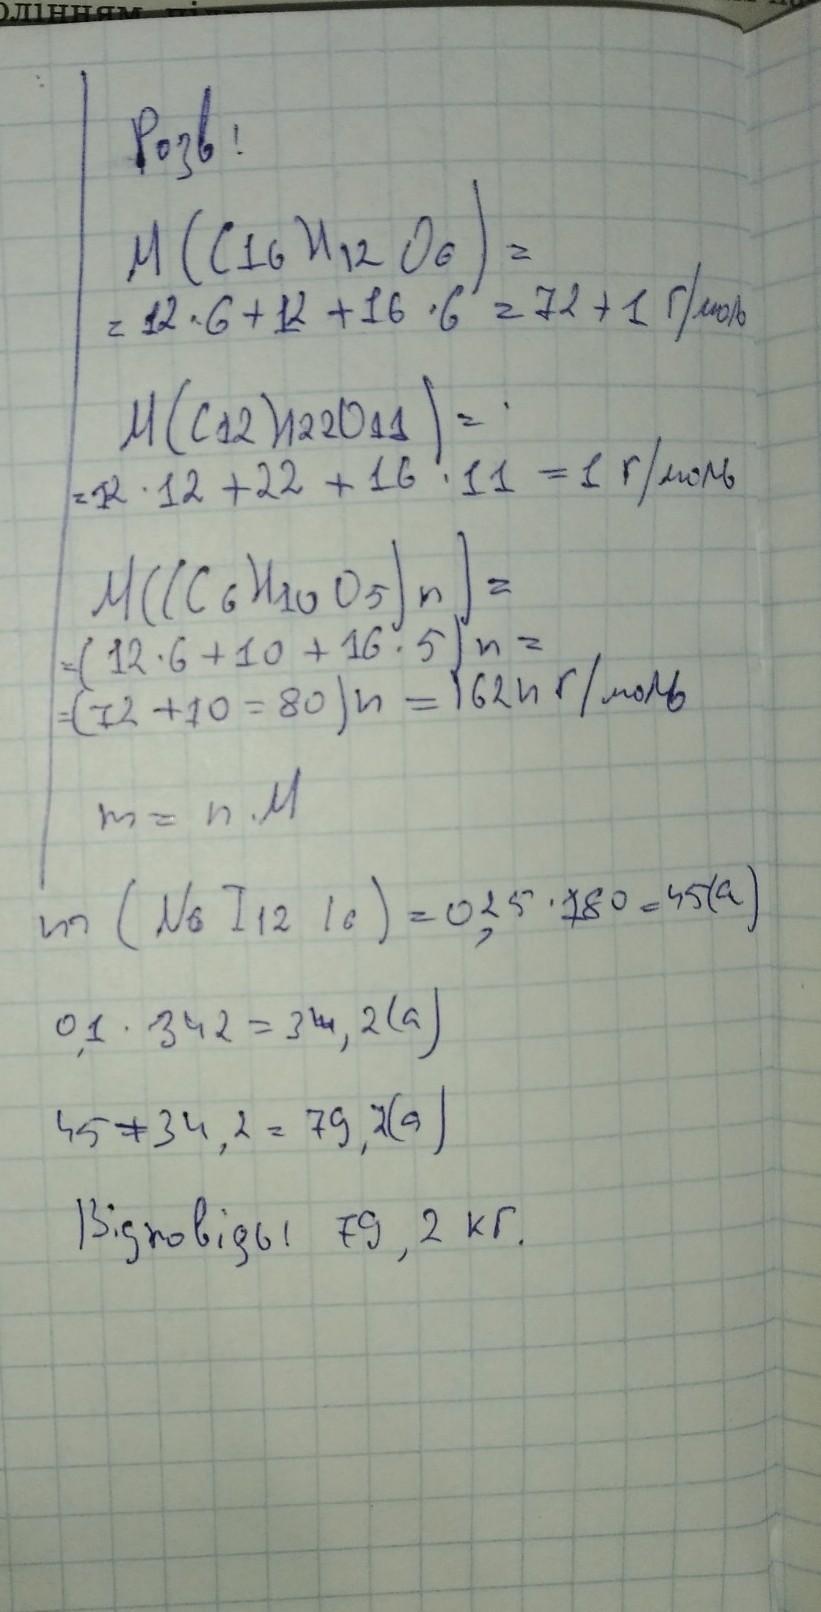 Розв!
M(C16H12O6) =
= 12·6+12+16·6 = 72+1 г/моль
M(C12H22O11) =
= 12·12+22+16·11 = 1 г/моль
M((C6H10O5)n) =
=(12·6+10+16·5)n =
=(72+10=80)n = 162n г/моль
m = n·M
m(N6I12I6) = 0,25·180 = 45(а)
0,1·342 = 34,2(а)
45+34,2 = 79,2(а)
Відповідь! 79,2 кг.